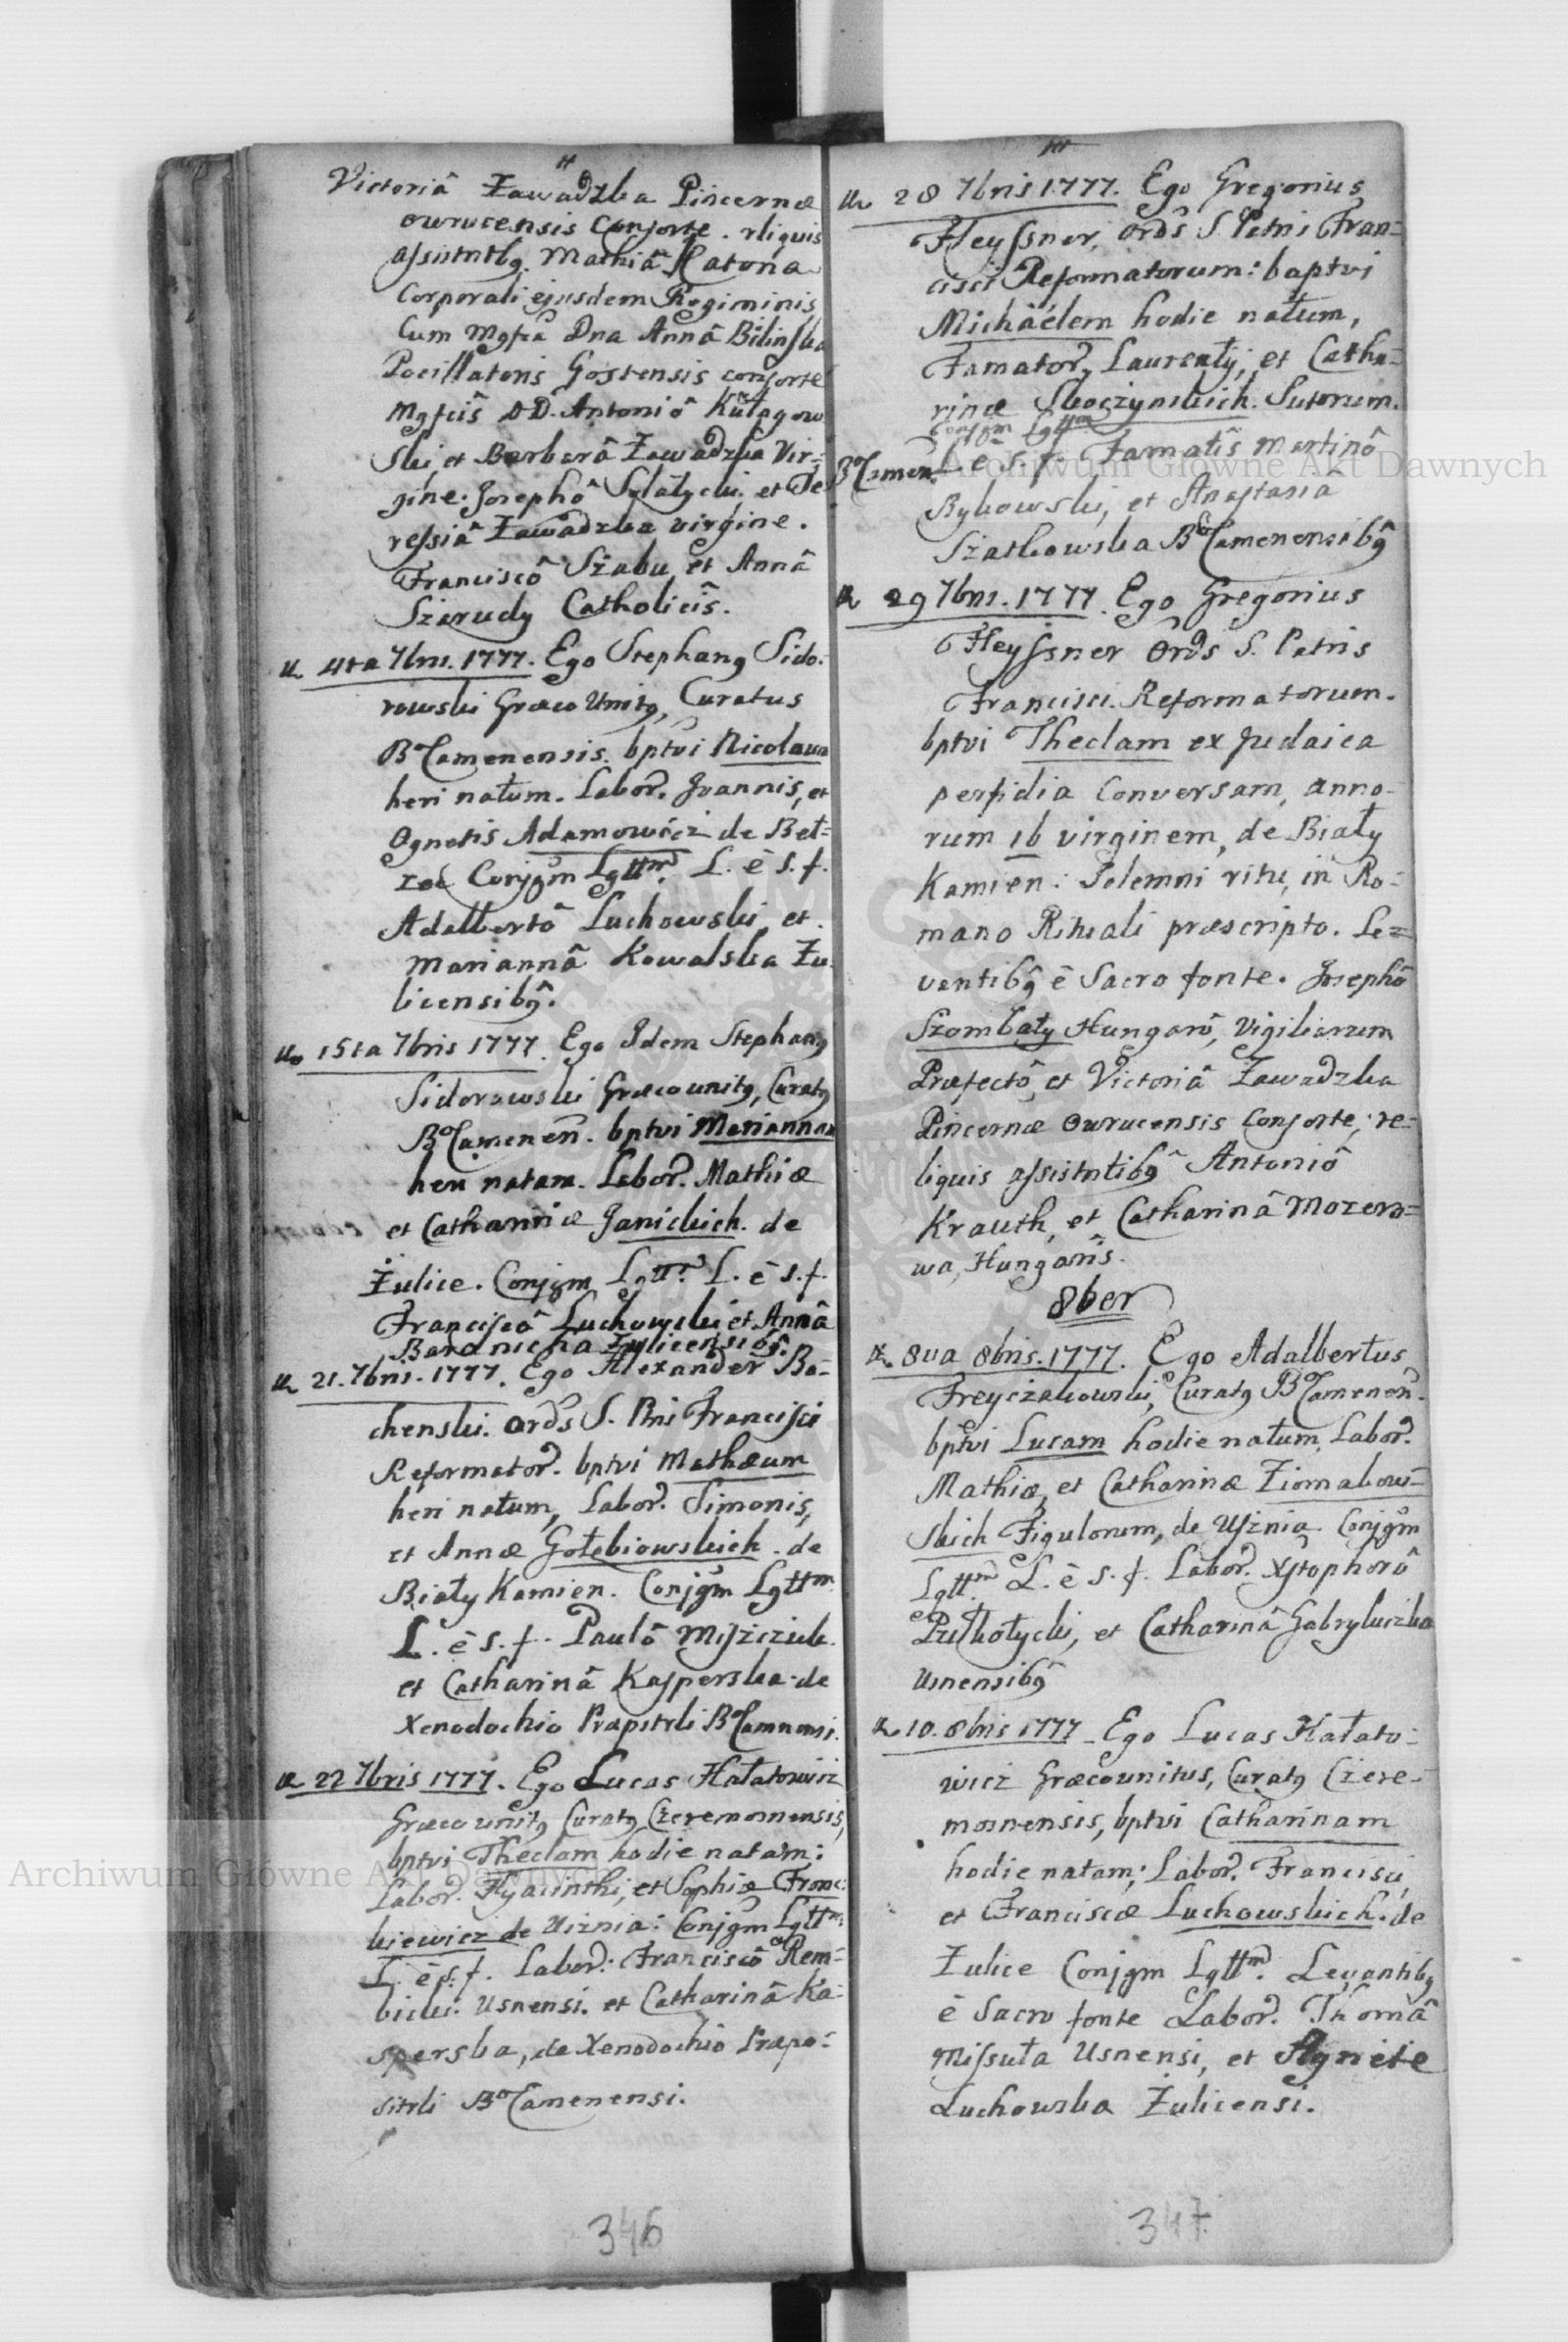 Victoriâ Zawadzka Pincernæ
owrucensis Consorte. rliquis
assistntbg. Mathiâ Katona
Corporali ejusdem Regiminis,
Cum Mgfca Dna Annâ Bilinska
Pocillatoris Gostensis consorte
Mgfcis DD. Antoniô
ski, et Barbarâ Zawadzka Vir=
gine. Josephô et Te
ressiâ Zawadzka virgine.
Franciscô Szabu et Annâ
Szerudy Catholicis.
4ta 7bris. 1777. Ego Stephang Sido=
rowski Græco Unitg, Curatus
BoCamenensis. bptvi Nicolaum
heri natum. Labor. Joannis, et
Agnetis Adamowicz de Beł=
zec Conjgm Lgttm. L. è s. f.
Adalbertô Luchowski, et
Mariannâ Kowalska Zu
licensibg.
15ta 7bris 1777. Ego Idem Stephang
Sidorowski Græcounitg, Curatg
BoCamenen. bptvi Mariannam
heri natam. Labor. Mathiæ
et Catharinæ Janickich. de
Żulice. Conjgm Lgttm. L. è s. f.
Franciscô Luchowski et Annâ
Baranicha Zulicensibg.
21. 7bris. 1777. Ego Alexander Bo=
chenski. Ords S. Pni Francisci
Reformator. bptvi Mathæum
heri natum, Labor. Simonis,
et Annæ Gołebiowskich. de
Biały Kamien. Conjgm Lgttm
L. è s. f. Paulô Miszczuk.
et Catharinâ Kasperska de
Xenodochio Præpstrli BoCamnensi.
22 7bris 1777. Ego Lucas Hałatowicz
Græco unitg Curatg Czeremosnensis,
bptvi Theclam hodie natam:
Labor. Hyacinthi, et Sophiæ Fronc=
kiewicz de Uznia: Conjgm Lgttm.
L. è s. f. Labor. Franciscô Rem=
bicki. Usnensi. et Catharinâ Ka=
sperska, de Xenodochio Præpo=
sitrli BoCamenensi.
346
28 7bris 1777. Ego Gregorius
Heyssner, Ords S. Patris Fran=
cisci Reformatorum: baptvi
Michäélem hodie natum,
Famator, Laurentÿ, et Catha=
rinæ Skoczynskich. Sutorum.
Conjgm Lgttm
BoCamen. L. è s. f. Famatis Martinô
Rykowski, et Anastasiâ
Szatkowska BoCamenensibg
29 7bris. 1777. Ego Gregorius
Heyssner Ords S. Patris
Francisci Reformatorum.
bptvi Theclam ex Judaica
perfidia Conversam, anno=
rum 16 virginem, de Biały
Kamien: Solemni ritu, in Ro=
mano Rituali præscripto. Le=
vantibg è Sacro fonte. Josephô
Szombaty Hungarô, Vigiliarum
Præfectô, et Victoriâ Zawadzka
Pincernæ Owrucensis Consorte, re=
liquis assistntibg Antoniô
Krauth, et Catharinâ Mozero=
wa, Hungaris.
8ber
8va 8bris. 1777. Ego Adalbertus
Freyczakowski, Curatg BoCamenen.
bptvi Lucam hodie natum, Labor.
Mathiæ, et Catharinæ Ziomakow=
skich Figulorum, de Usznia Conjgm
Lgttm. L. è s. f. Labor. Xstophorô
et Catharinâ Gabryluczka
Usnensibg
10. 8bris 1777. Ego Lucas Hałato=
wicz Græcounitus, Curatg Czere=
mosnensis, bptvi Catharinam
hodie natam; Labor. Francisci,
et Franciscæ Luchowskich. de
Zulice Conjgm Lgttm. Levantibg
è Sacro fonte Labor. Thomâ
Missuta Usnensi, et Agnete
Luchowska Żulicensi.
347
Archiwum Główne Akt Dawnych
Archiwum Główne Akt Dawnych